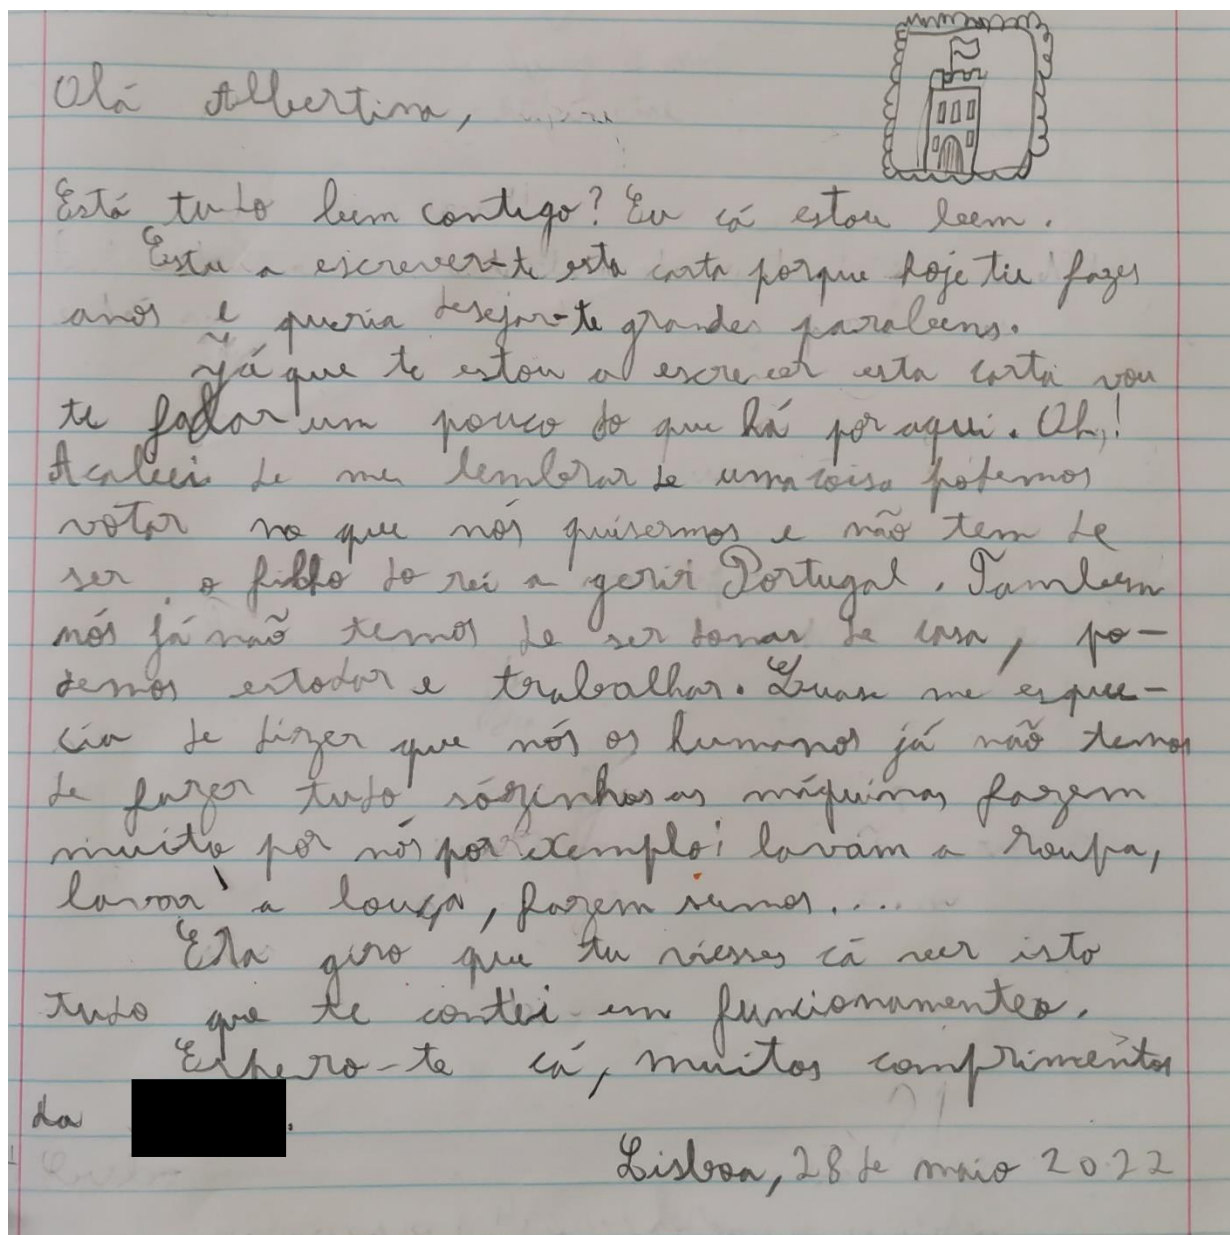 Olá Albertina,
Está tudo bem contigo? Eu cá estou bem.
Estou a escrever-te esta carta porque hoje tu fazes
anos e queria desejar-te grandes parabens.
Já que te estou a escrever esta carta vou
te falar um pouco do que há por aqui. Oh,!
Acabei de me lembrar de uma coisa podemos
votar no que nós quisermos e não tem de
ser o filho do rei a gerir Portugal. Tambem
nós já não temos de ser donas de casa, po-
demos estodar e trabalhar. Quase me esque-
cia de dizer que nós os humanos já não temos
de fazer tudo sózinhos as máquinas fazem
muito por nós por exemplo: lavam a roupa,
lavam a louça, fazem sumos....
Era giro que tu viesses cá ver isto
tudo que te contei em funcionamento.
Espero-te cá, muitos comprimentos
da .
Lisboa, 28 de maio 2022